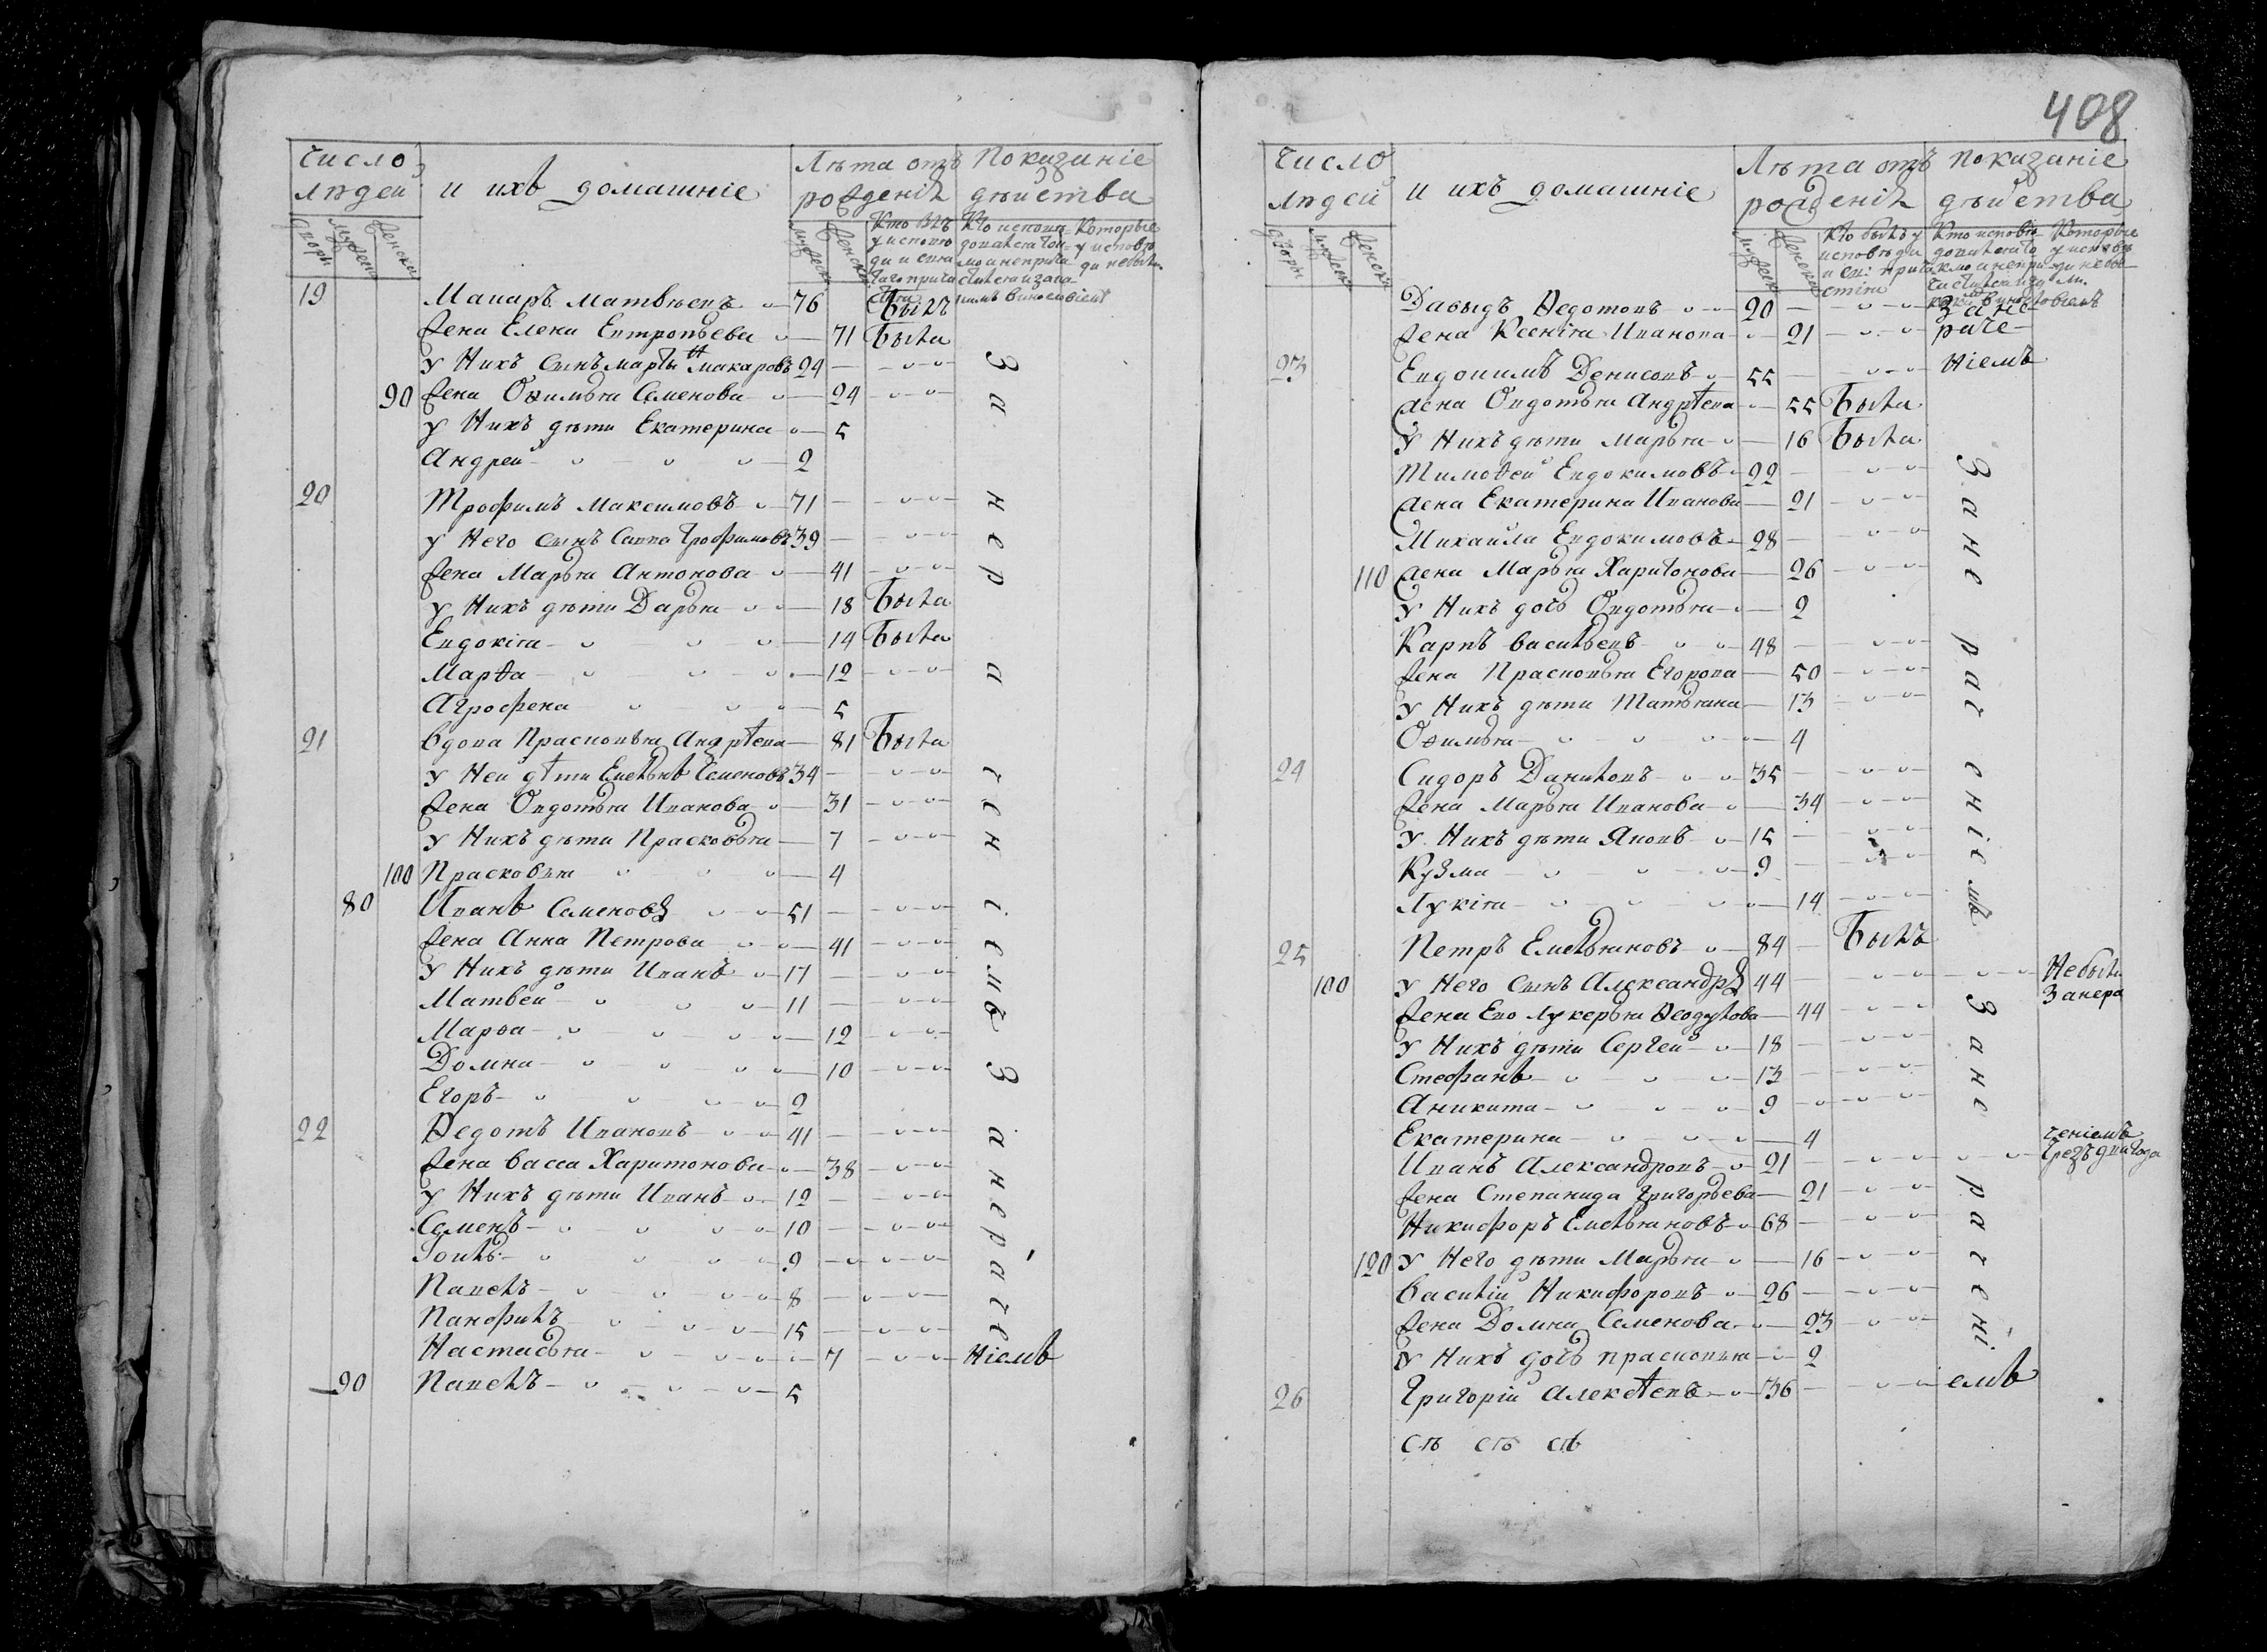 408
Число людей
и ихъ домашніе
Лѣта отъ рожденія
Показаніе дѣйства
дворы
мужеска
женска
мужеска
женска
19 Макаръ Матвѣевъ 76 Былъ
жена Елена Евтропьева 71 Была
у Нихъ сынъ Мартынъ Макаровъ 24
90 жена Офимья Семенова 24
у Нихъ дѣти Екатерина 5
Андрей 2
20 Трофимъ Максимовъ 71
у Него сынъ Савва Трофимовъ 39
жена Марья Антонова 41
у Нихъ дѣти Дарья 18 Была
Евдокія 14 Была
Марѳа 12
Агрофена 5
21 вдова Прасковья Андрѣева 81 Была
у Ней дѣти Емельянъ Семеновъ 34
жена Овдотья Иванова 31
у Нихъ дѣти Прасковья 7
100 Прасковья 4
80 Иванъ Семеновъ 51
жена Анна Петрова 41
У Нихъ дѣти Иванъ 17
Матвей 11
Марѳа 12
Домна 10
Егоръ 2
22 Ѳедотъ Ивановъ 41
жена Васса Харитонова 38
у Нихъ дѣти Иванъ 12
Семенъ 10
Іовль 9
Павелъ 8
Панфилъ 15
Настасья 7
90 Павелъ 5
За нераченіемъ За нераченіемъ
Число людей
и ихъ домашніе
Лѣта отъ рожденія
показаніе дѣйства
дворы
мужеска
женска
мужеска
женска
Давыдъ Ѳедотовъ 20 За не-
жена Ксенія Иванова 21 раче-
23 Евдокимъ Денисовъ 55 ніемъ
жена Овдотья Андрѣева 55 Была
У Нихъ дѣти Марья 16 Была
Тимоѳей Евдокимовъ 22
жена Екатерина Иванова 21
Михайла Евдокимовъ 28
110 жена Марья Харитонова 26
у Нихъ дочь Овдотья 2
Карпъ Васильевъ 48
жена Прасковья Егорова 50
у Нихъ дѣти Татьяна 13
Офимья 4
24 Сидоръ Даниловъ 35
жена Марья Иванова 34
У Нихъ дѣти Яковъ 15
Кузма 9
Лукія 14
25 Петръ Емельяновъ 84 Былъ
100 у Него сынъ Александръ 44 Небыли
Занера
жена Ево Лукерья Ѳеодулова 44
у Нихъ дѣти Сергей 18
Стефанъ 13
Аникита 9
Екатерина 4 ченіемъ
Иванъ Александровъ 21 Чрезъ два года
жена Степанида Григорьева 21
Никифоръ Емельяновъ 68
120 у Него дѣти Марья 16
Василій Никифоровъ 26
жена Домна Семенова 23
у Нихъ дочь прасковья 2
26 Григорій Алексѣевъ 36
За нераченіемъ За нераченіемъ